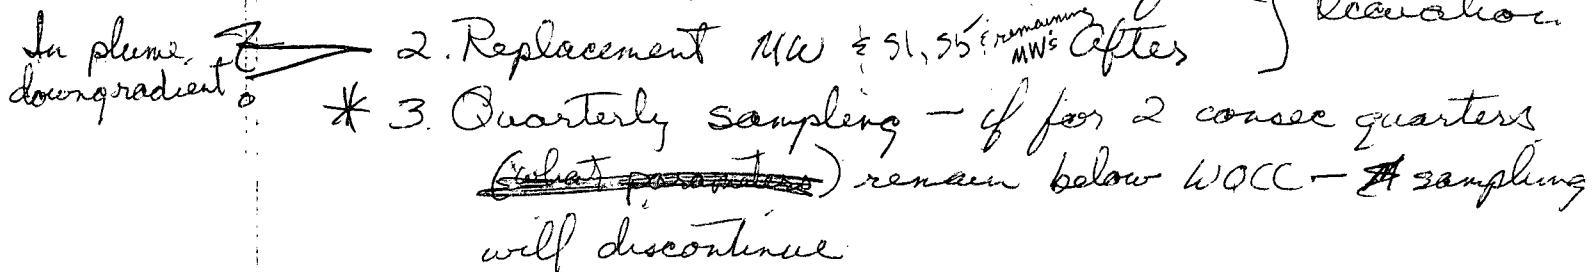 In plume,
downgradient
2. Replacement MW & S1, S5 & remaining MW's After
* 3. Quarterly sampling - if for 2 consec quarters
(what parameters) remain below WQCC - sampling
will discontinue